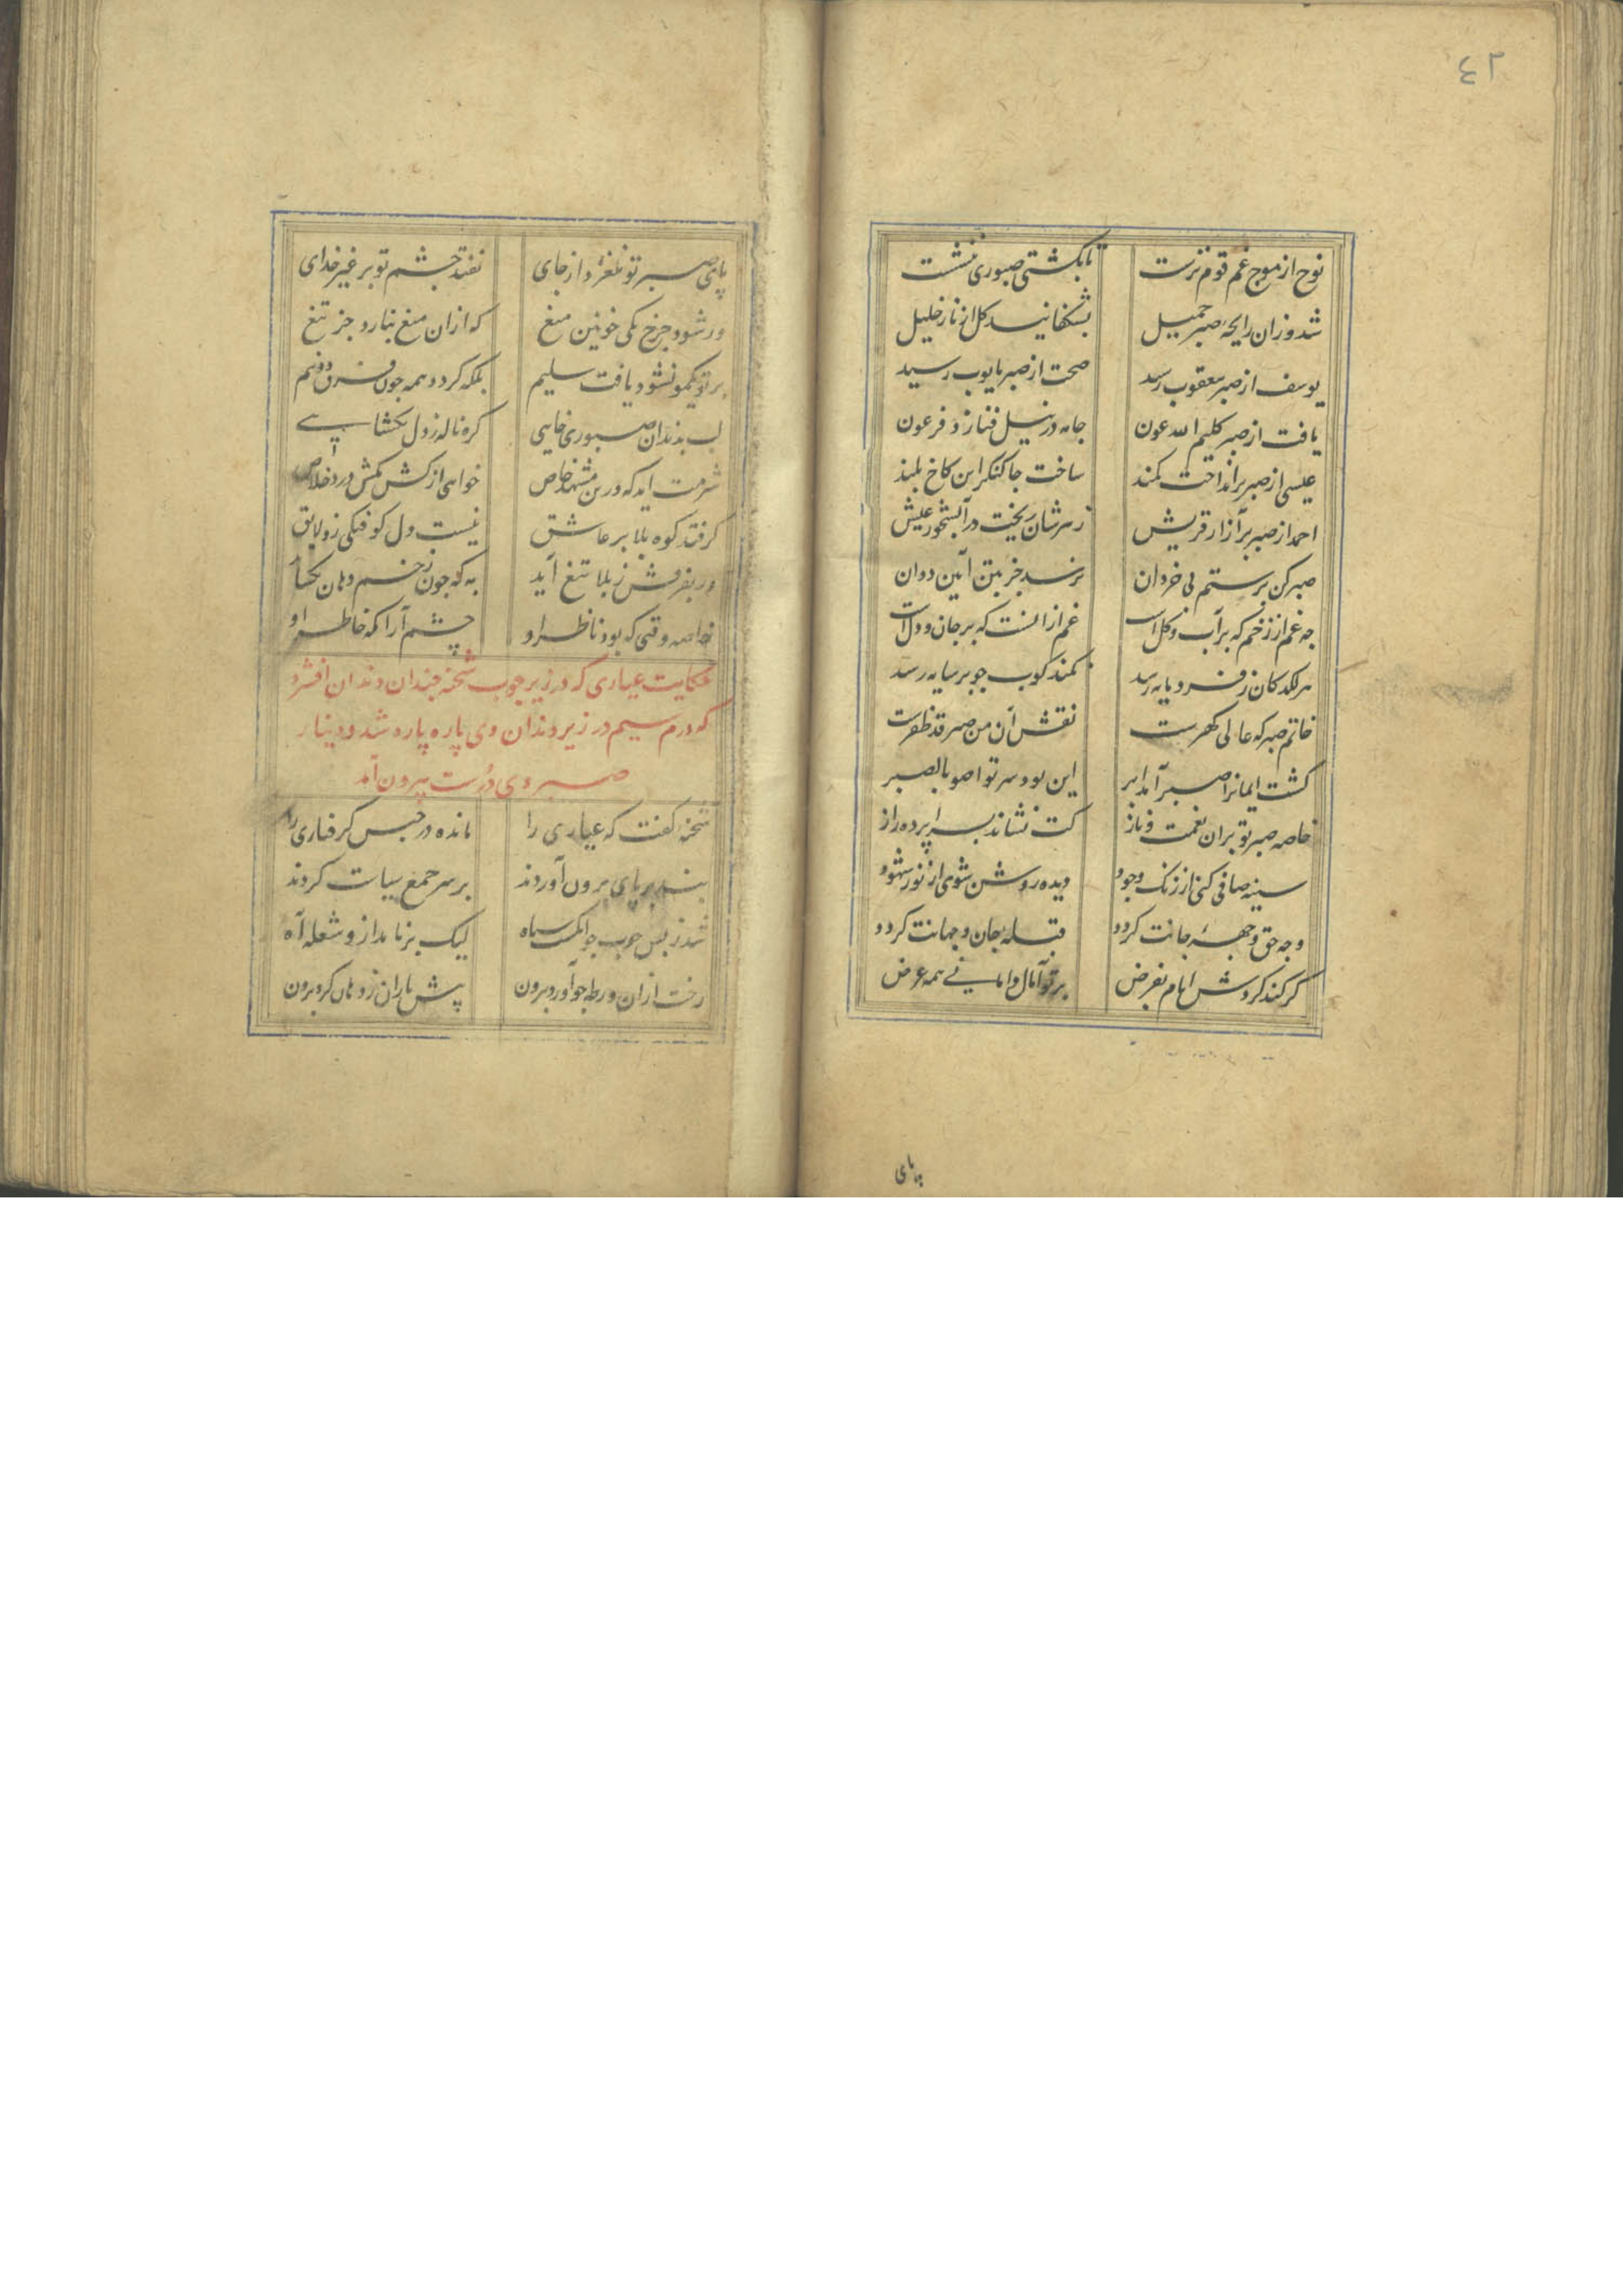 ٤٢
نوح از موج غم قوم نرست تا بکشتی صبوری ننشست
شد وزان رایحهٔ صبر جمیل بشکفانید کل از نار خلیل
یوسف از صبر بیعقوب رسید صحت از صبر بایوب رسید
یافت از صبر کلیم الله عون جامه در نیل فنا زد فرعون
عیسی از صبر برانداخت کمند ساخت جا کنکر این کاخ بلند
احمد از صبر بر آزار قریش زهرشان ریخت در آبشخور عیش
صبر کن بر ستم بی خردان نرسد جز بتن آیین ددان
چه غم از زخم که بر آب و کل است غم از آنست که بر جان و دل است
هر لکد کان ز فرومایه رسد نکند کوب چو بر سایه رسد
خاتم صبر که عالی کهرست نقش آن من صبر قد ظفرست
کشت ایمانرا صبر آمد ابر این بود سر تواصوا بالصبر
خاصه صبر تو بران نعمت و ناز کت نشاند بسراپرده راز
سینه صافی کنی از زنک وجود دیده روشن شوی از نور شهود
وجه حق وجههٔ جانت کردد قبلهٔ جان و جهانت کردد
کر کند کردش ایام بفرض بر تو آمال و امانی همه عرض
پای
پای صبر تو نلغزد از جای نفتد چشم تو بر غیر خدای
ور شود چرخ یکی خونین میغ که ازان میغ نبارد جز تیغ
بر تو یکمو نشود یافت سلیم بلکه کردد همه چون فرق دو نیم
لب بدندان صبوری خایی کره ناله ز دل نکشایی
شرمت آید که درین مشهد خاص خواهی از کش مکش درد خلاص
کر فتد کوه بلا بر عاشق نیست دل کوفتکی زو لایق
ور بفرقش ز بلا تیغ آید به که چون زخم دهان نکشاید
خاصه وقتی که بود ناظر او چشم آرامکه خاطر او
حکایت عیاری که در زیر چوب شحنه چندان دندان افشرد
که درم سیم در زیر دندان وی پاره پاره شد و دینار
صبر وی درست بیرون آمد
شحنهٔ کفت که عیاری را مانده در حبس کرفتاری را
بند بر پای برون آوردند بر سر جمع سیاست کردند
شد ز بس چوب چو انکشت سیاه لیک بر نامد ازو شعله آه
رخت ازان ورطه چو آورد برون پیش یاران ز دهان کرد برون